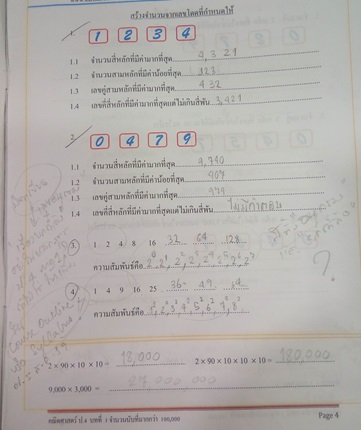 สร้างจำนวนจากเลขโดดที่กำหนดให้
1.
1 2 3 4
1.1 จำนวนสี่หลักที่มีค่ามากที่สุด 4,321
1.2 จำนวนสามหลักที่มีค่าน้อยที่สุด 123
1.3 เลขคู่สามหลักที่มีค่ามากที่สุด 432
1.4 เลขที่สี่หลักที่มีค่ามากที่สุดแต่ไม่เกินสี่พัน 3,421
2.
0 4 7 9
1.1 จำนวนสี่หลักที่มีค่ามากที่สุด 9,740
1.2 จำนวนสามหลักที่มีค่าน้อยที่สุด 407
1.3 เลขคู่สามหลักที่มีค่ามากที่สุด 974
1.4 เลขที่สี่หลักที่มีค่ามากที่สุดแต่ไม่เกินสี่พัน ไม่มีคำตอบ
3. 1 2 4 8 16 32 64 128
ความสัมพันธ์คือ 2⁰, 2¹, 2², 2³, 2⁴, 2⁵, 2⁶, 2⁷
4. 1 4 9 16 25 36 49 64
ความสัมพันธ์คือ 1², 2², 3², 4², 5², 6², 7², 8²
?
2 × 90 × 10 × 10 = 18,000 2 × 90 × 10 × 10 × 10 = 180,000
9,000 × 3,000 = 27 000 000
คณิตศาสตร์ ป.4 บทที่ 1 จำนวนนับที่มากกว่า 100,000 Page 4